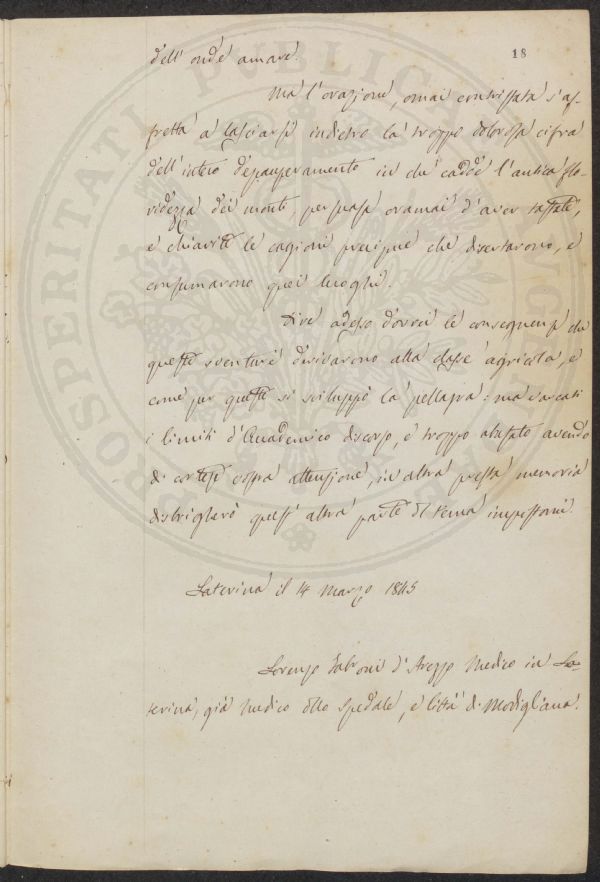 18
dell'onde amare.
Ma l'orazione, omai contristata s'af-
fretta a lasciarsi indietro la troppo dolorosa cifra
dell'intero depauperamento in che cadde l'antica flo-
ridezza dei monti, persuasa oramai d'aver tassate,
e chiarite le cagioni precipue che disertarono, e
consumarono quei luoghi.
Dire adesso dovrei le conseguenze che
queste sventure derivarono alla classe agricola, e
come per queste si sviluppò la pellagra: ma varcati
i limiti d'Accademico discorso, e troppo abusato avendo
di cortese vostra attenzione, in altra presta memoria
distrigherò quest'altra parte di tema impostomi.
Laterina il 14 Marzo 1845
Lorenzo Fabroni d'Arezzo Medico in La-
terina, già Medico dello Spedale, e Città di Modigliana.
PROSPERITATI PUBLICAE AUGENDAE